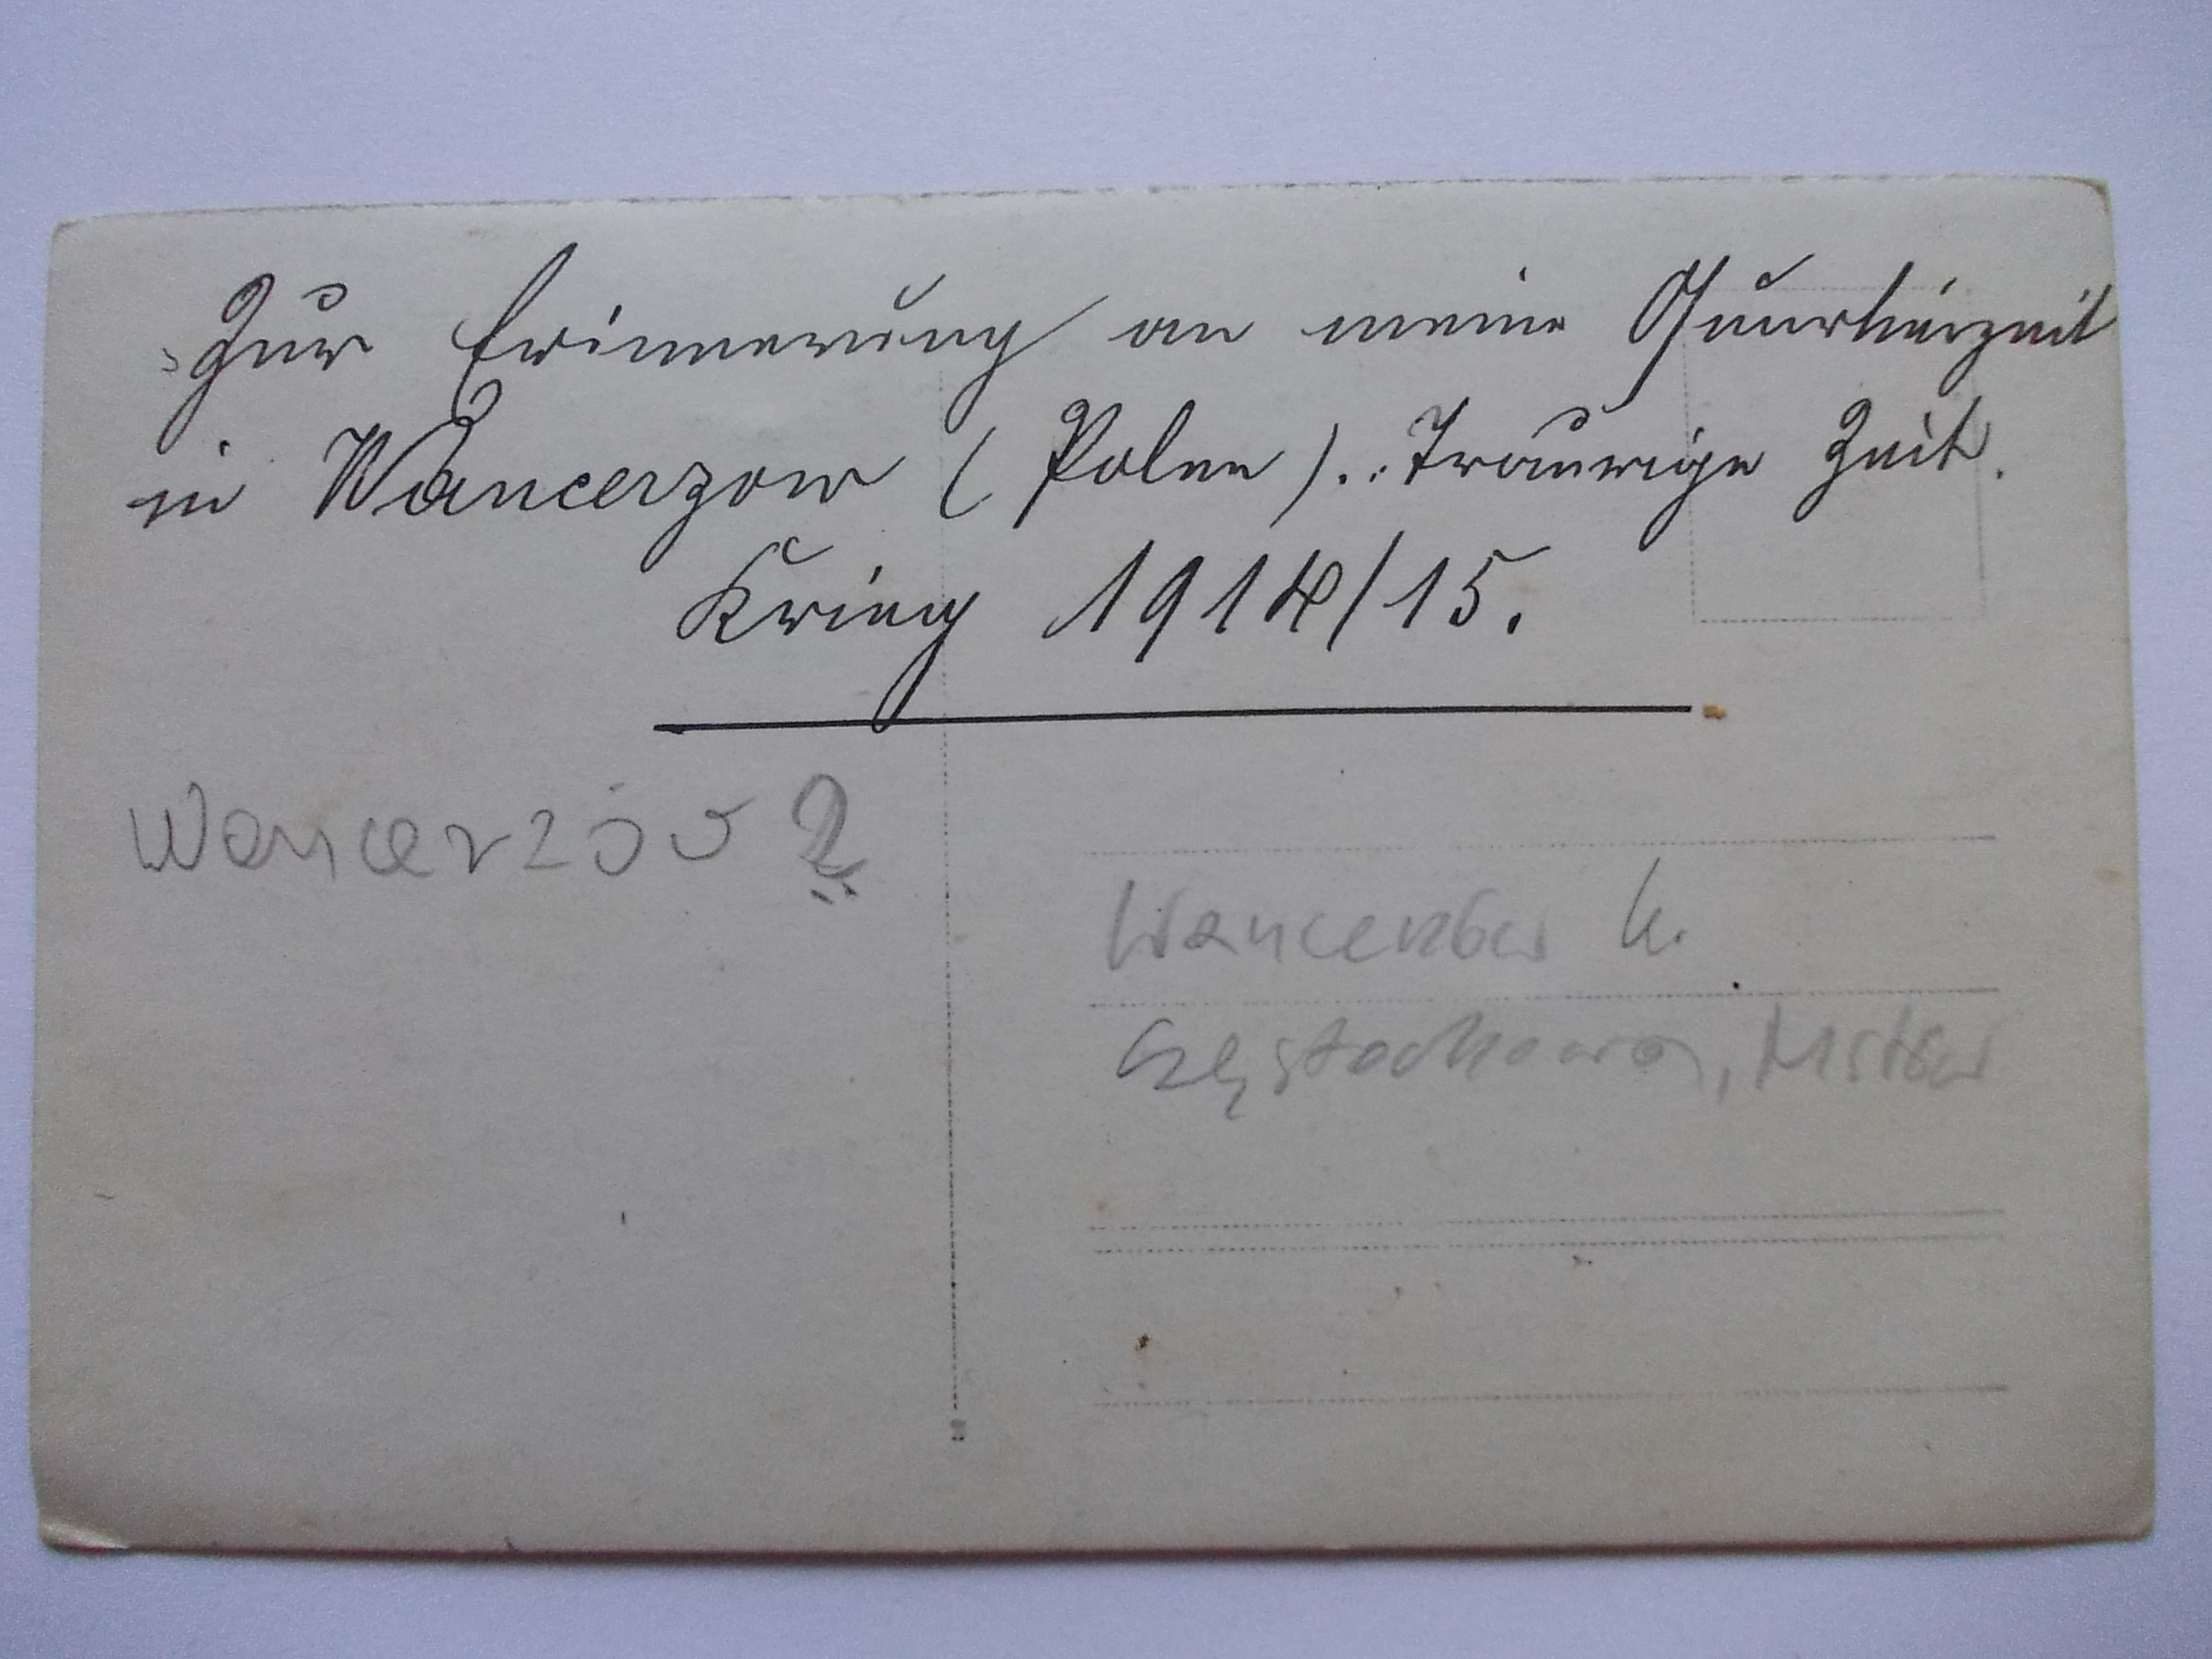 Zur Erinnerung an meine Quartierzeit
in Wancerzow (Polen). Traurige Zeit.
Krieg 1914/15.
Wancerzów?
Wancerzów k.
Częstochowa, Mstów